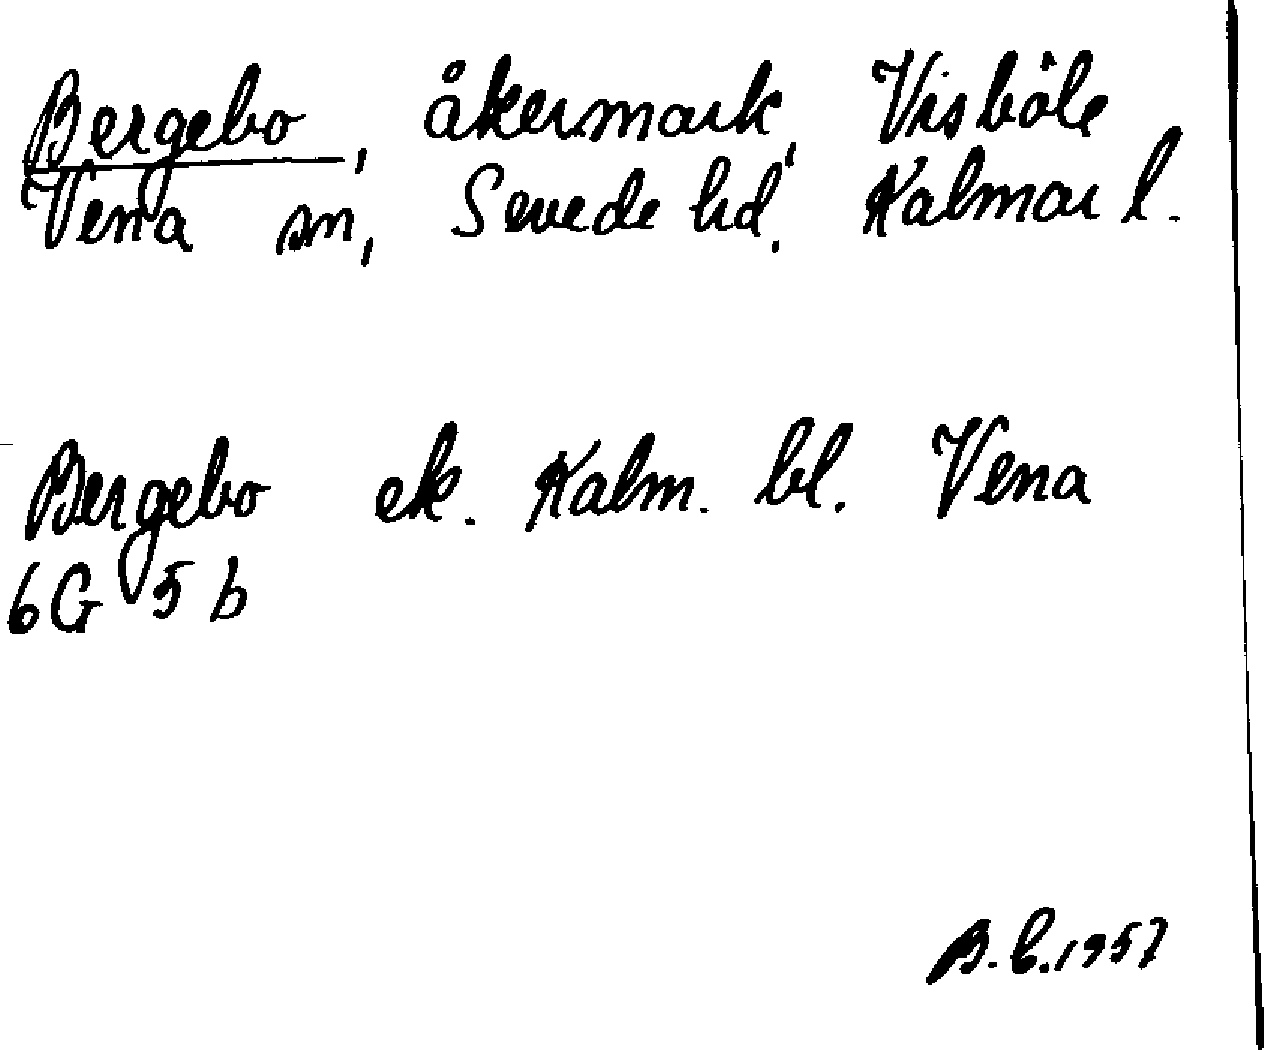 Bergebo, åkermark, Visböle
Vena sn, Sevede hd. Kalmar l.
Bergebo ek. Kalm. bl. Vena
6G 5 b
B.C.1957